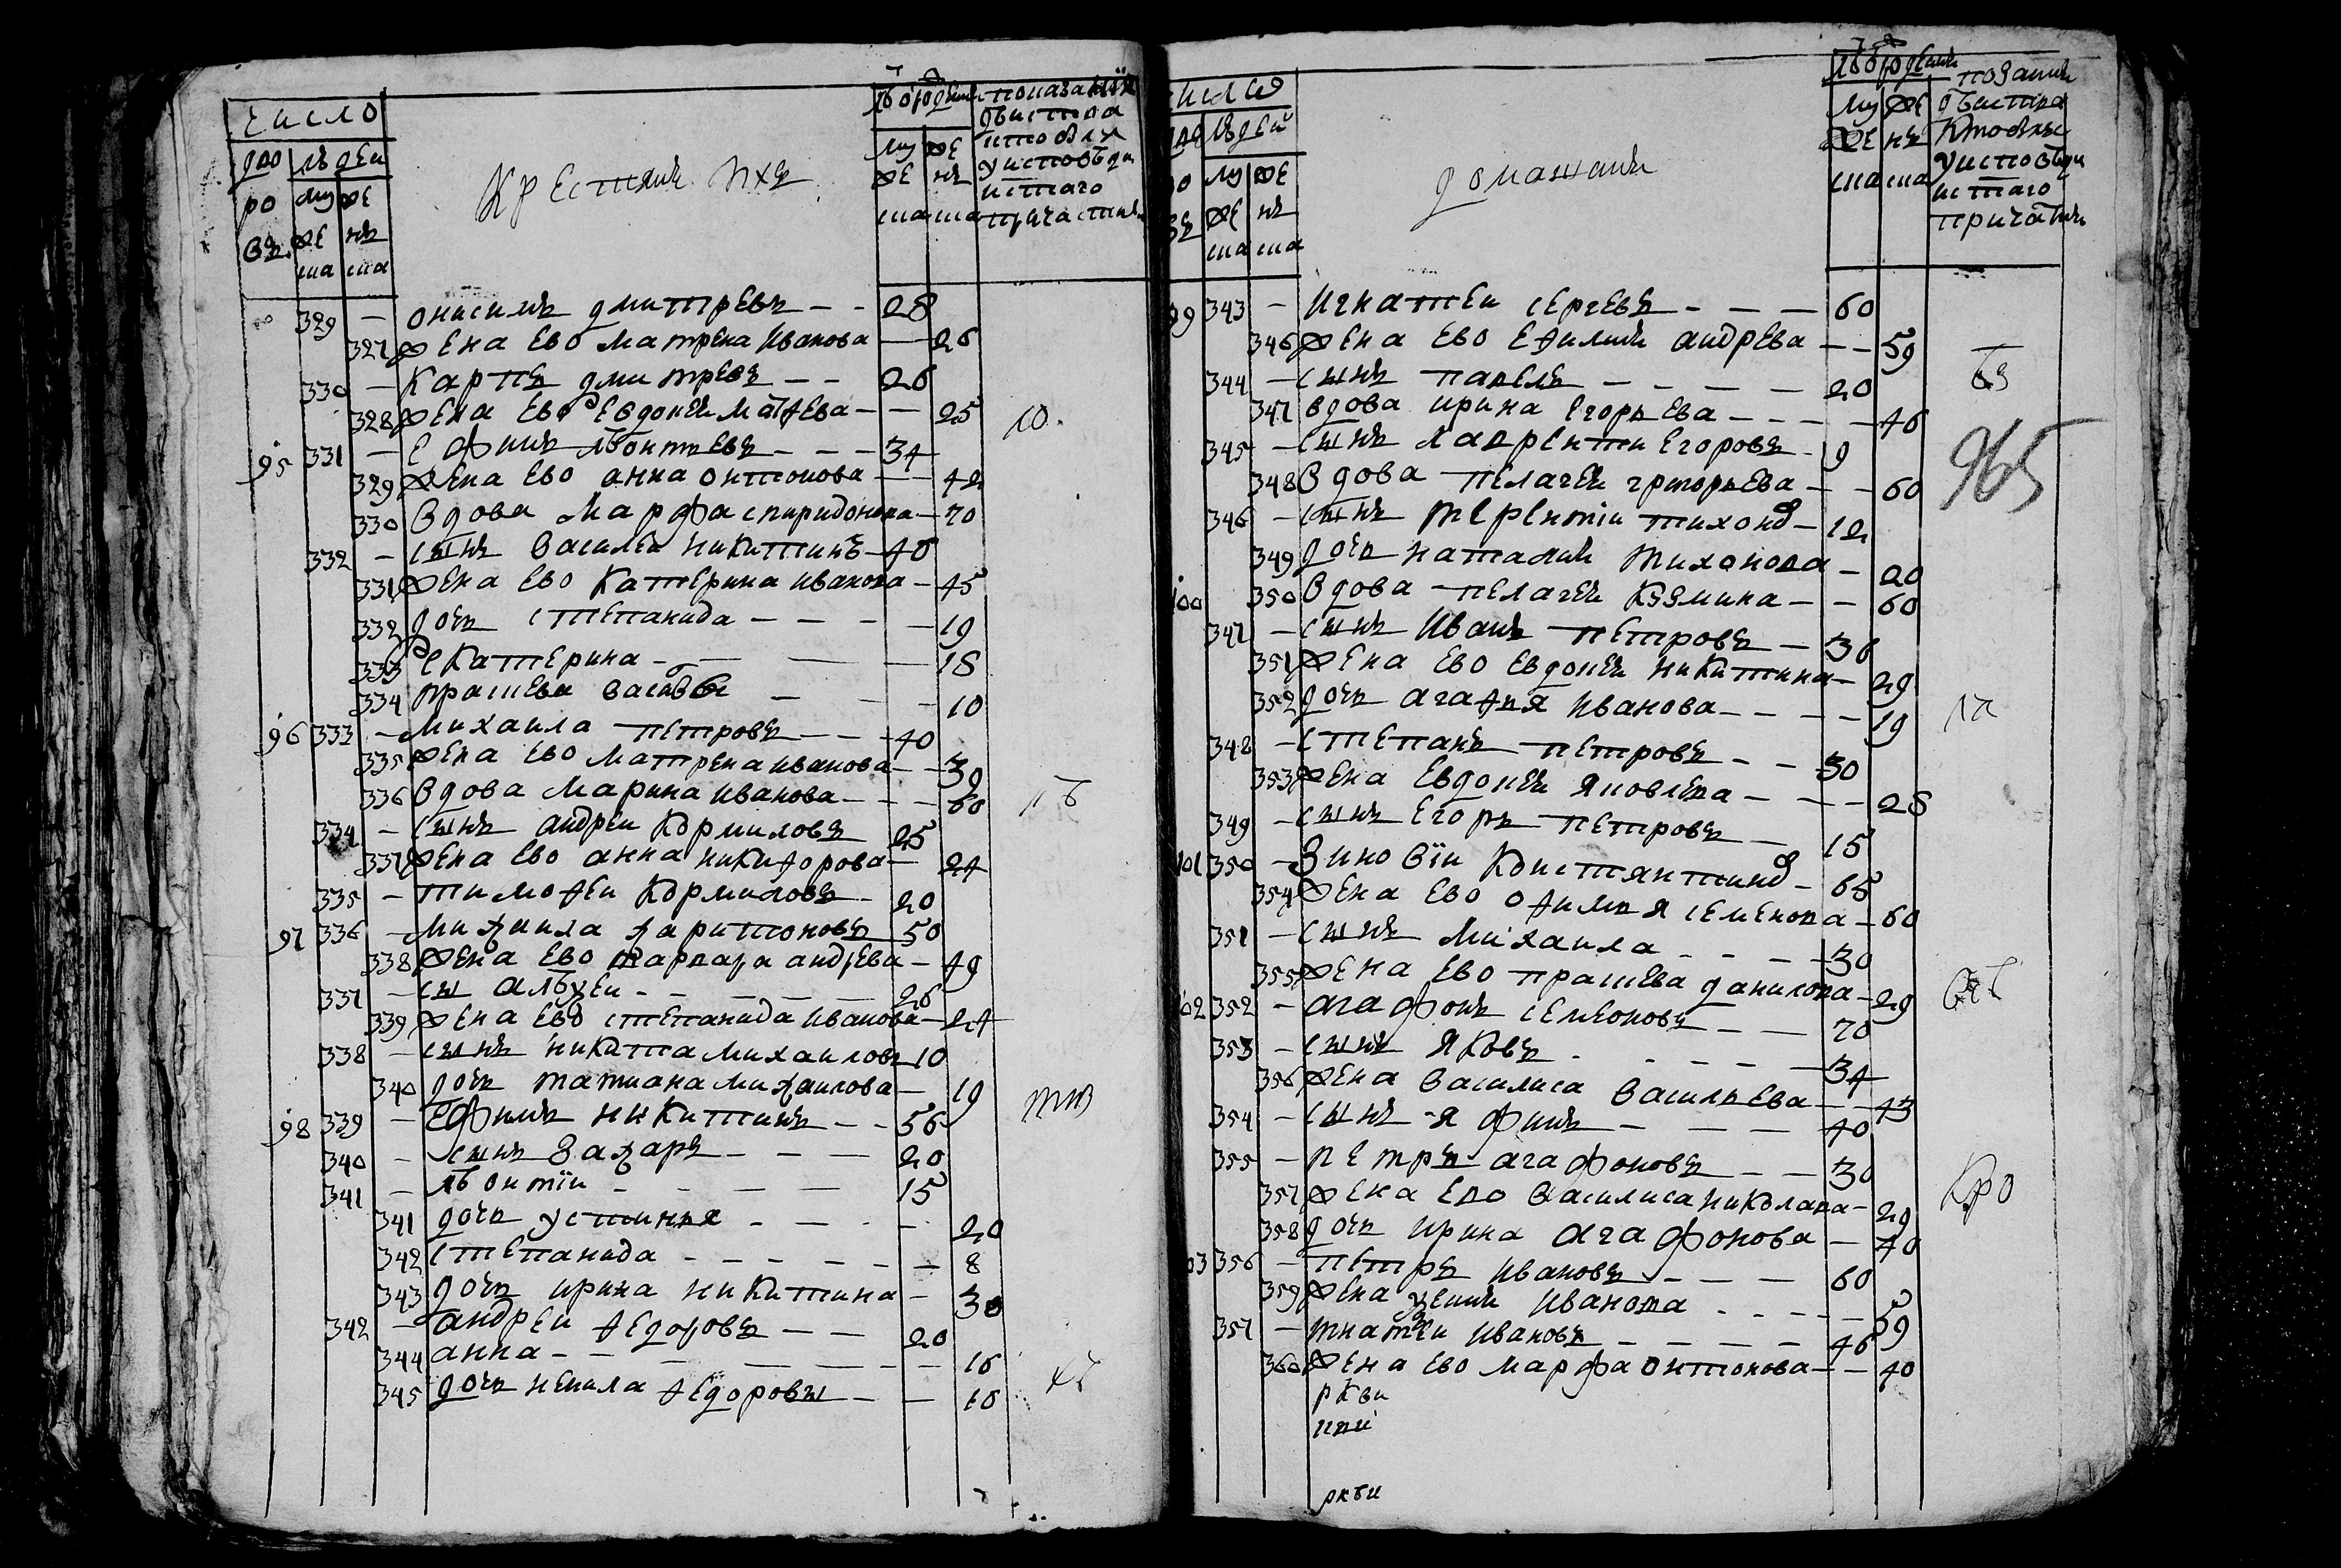 число
дво ров людеи
му же ска же нь ска
Крестянъ ихъ
лѣторождени
му же ска же нь ска
показание
329 — онисимъ дмитревъ — — 28
327 жена ево матрена иванова — — 26
330 — карпъ дмитревъ — — 26
328 жена ево евдокѣя матѳева — — 25
95 331 — ефимъ лѣонтьевъ — — — 34
329 жена ево анна онтонова — — 42
330 вдова марфа спиридонова — 70
332 — сынъ василеи никитинъ — 46
331 жена ево катерина иванова — 45
332 дочь степанида — — — — 19
333 екатерина — — — — 18
334 — — 10
96 333 — михаила петровъ — — — 40
335 жена ево матрена иванова — — 39
336 вдова марина иванова — — — 60
334 — сынъ андреи кормиловъ 25
337 жена ево анна никиѳорова — 24
335 — тимоѳеи кормиловъ — 20
97 336 — михаила харитоновъ — 50
338 жена ево андрева — 49
337 — сы — — — — 26
339 жена ево степанида иванова — 24
338 — сынъ никита михаиловъ 10
340 дочь татиана михаилова — 19
98 339 — ефимъ никитинъ — — 56
340 — сынъ захаръ — — — 20
341 — лѣонтїи — — — — 15
341 дочь устинья — — — — 20
342 степанида — — — — — — 8
343 дочь ирина никитина — 30
342 — андреи ѳедоровъ — — 20
344 анна — — — — — — — 16
345 дочь ненила ѳедоровы — — 10
число
людеи
му же ска же нь ска
домашни
лѣторождени
му же ска же нь ска
99 343 — игнатеи сергевъ — — — 60
346 жена ево андрева — — 59
344 — сынъ павелъ — — — — 20
347 вдова ирина егорьева — — — — 46
345 — сынъ лаврентеи егоровъ — 9
348 вдова пелагея григорьева — — 60
346 — сынъ терентїи тихоно — 12
349 дочь наталия тихонова — 20
100 350 вдова пелагея кузмина — — 60
347 — сынъ иванъ петровъ — 30
351 жена ево евдокѣя никитина — 29
352 дочь агаѳья иванова — — — — 19
348 — степанъ петровъ — — 30
353 жена евдокѣя яковлева — — — 28
349 — сынъ егоръ петровъ — 15
101 350 — зиновїи констянтино — 65
354 жена ево оѳимья семенова — 60
351 — сынъ михаила — — — — 30
355 жена ево данилова — 29
102 352 — агафонъ семеоновъ — — 70
353 — сынъ яковъ — — — — 34
356 жена василиса васильева — — 43
354 — сынъ яфимъ — — — — 40
355 — петръ агафоновъ — — 30
357 жена ево василиса николава — 29
358 дочь ирина агафонова — 40
103 356 — петръ ивановъ — — — 60
359 жена иванова — — — — 59
357 — игнатеи ивановъ — — — — 46
360 жена ево марфа онтонова — — 40
965